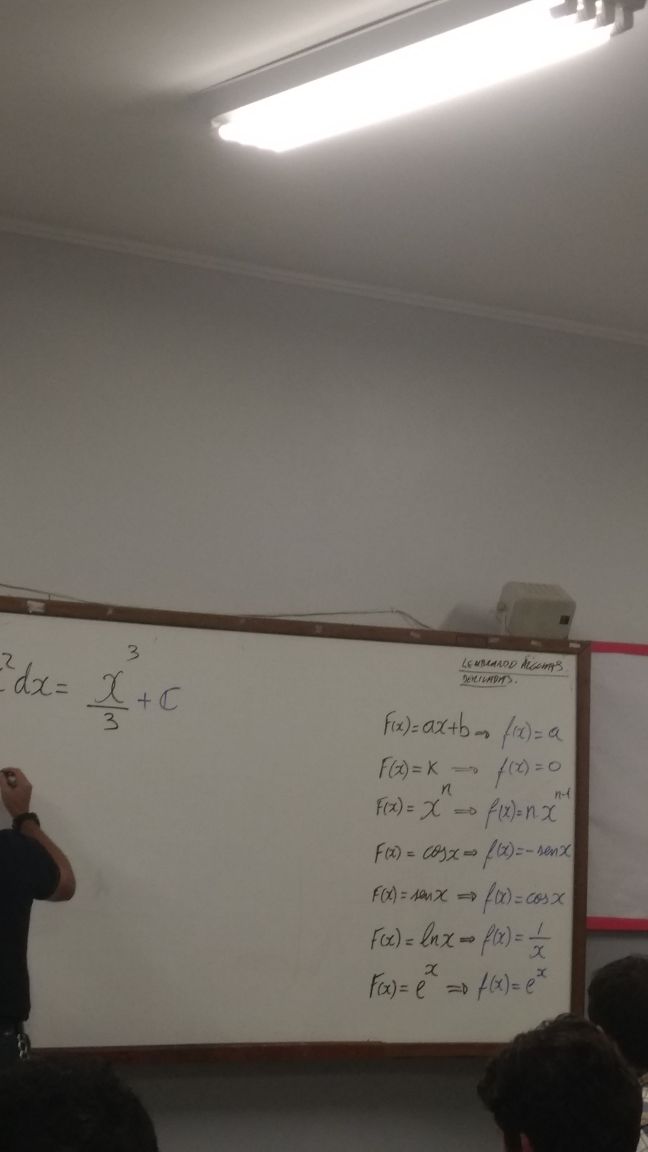 ² dx = x³/3 + C
LEMBRANDO ALGUMAS
DERIVADAS.
F(x)=ax+b ⇒ f(x)=a
F(x)=K ⇒ f(x)=0
F(x)=xⁿ ⇒ f(x)=n.xⁿ⁻¹
F(x)=cosx ⇒ f(x)=-senx
F(x)=senx ⇒ f(x)=cosx
F(x)=lnx ⇒ f(x)=1/x
F(x)=eˣ ⇒ f(x)=eˣ